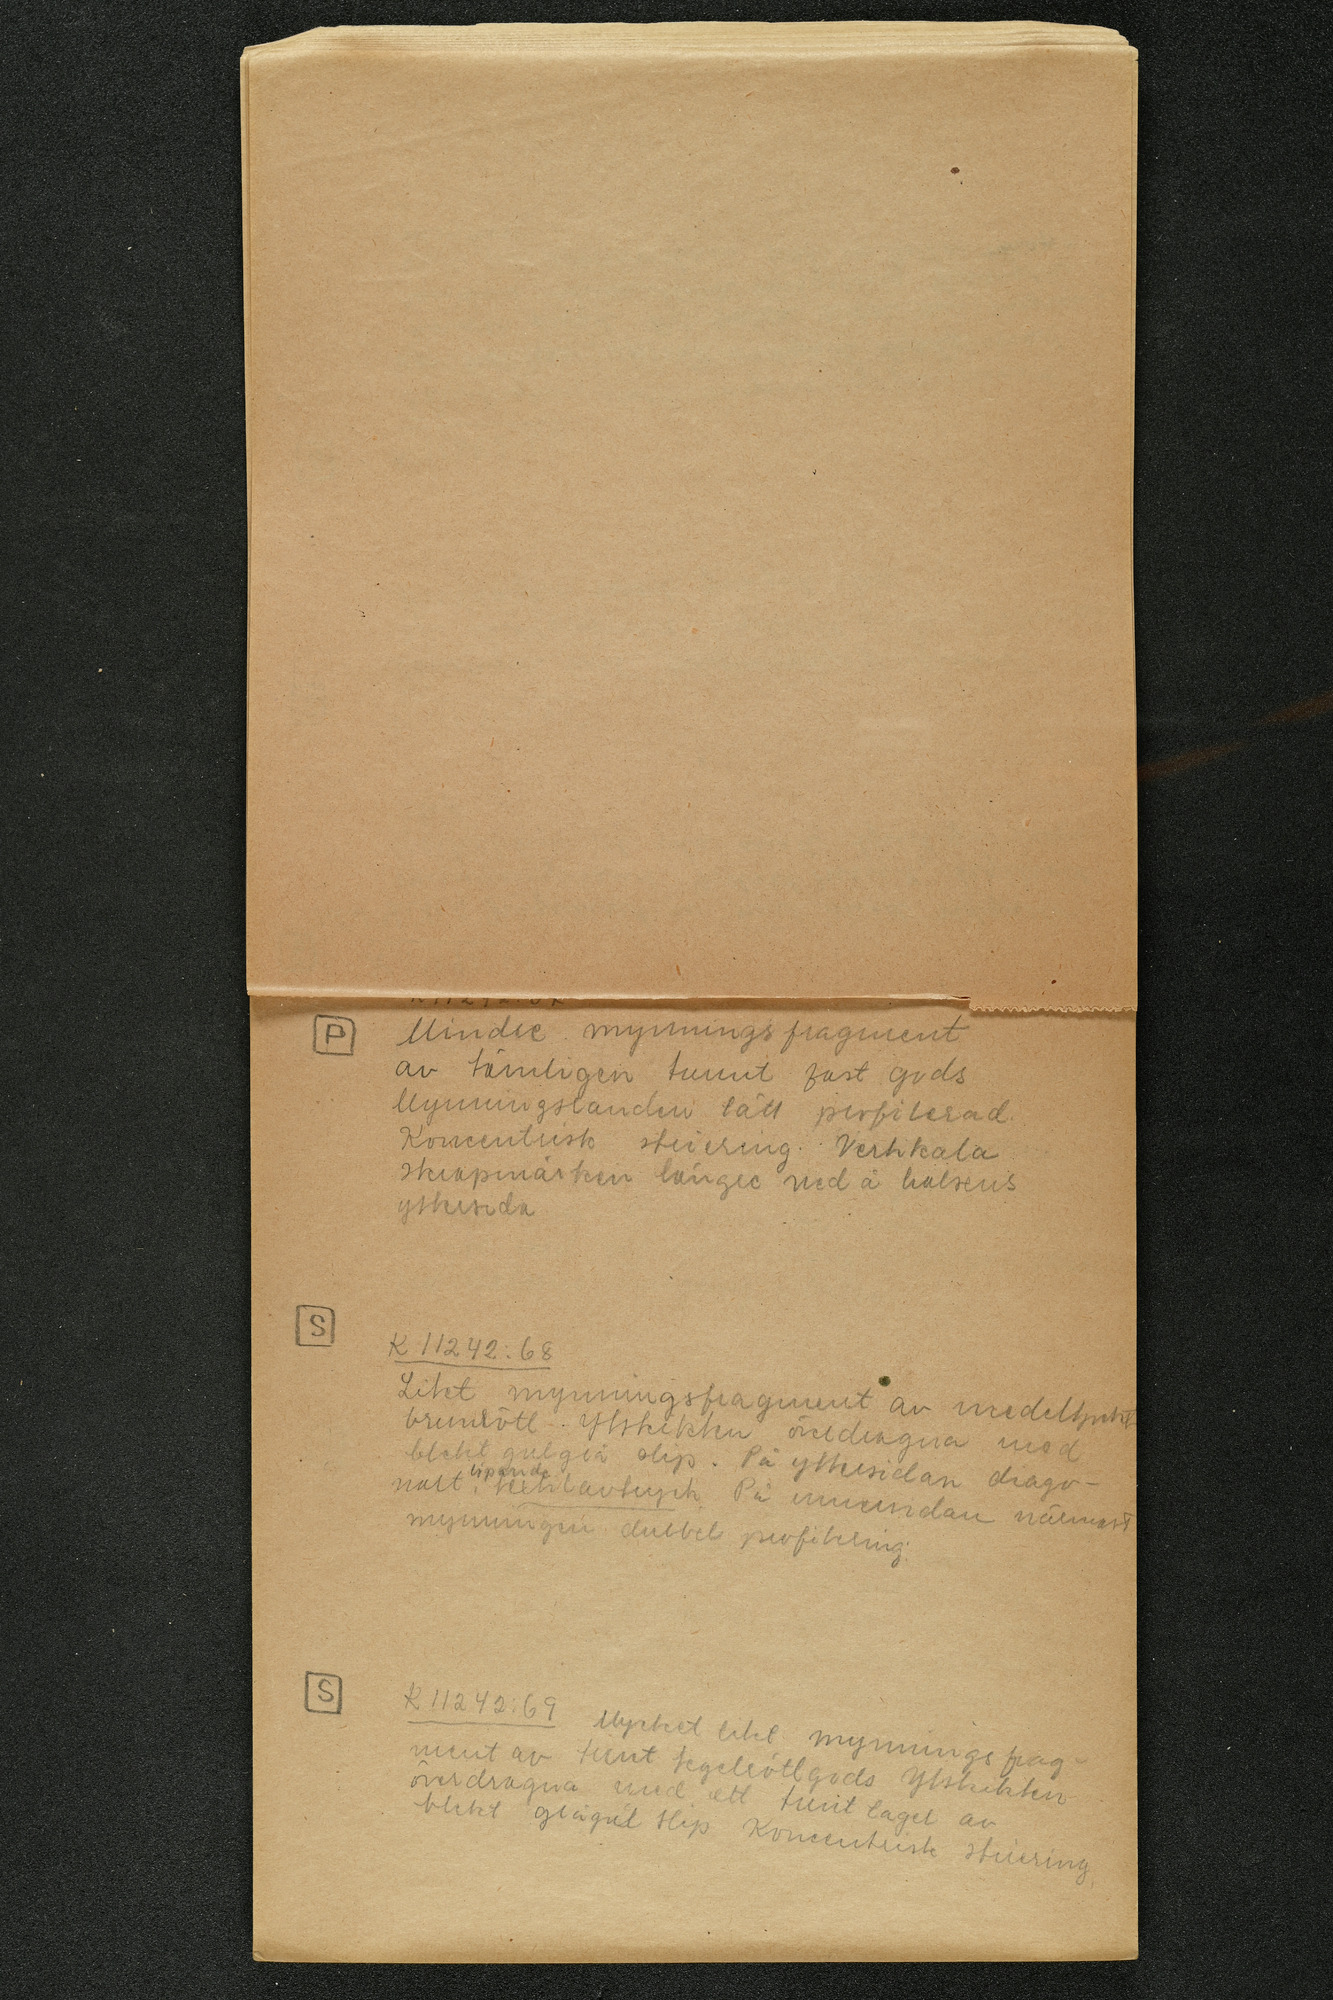 K 11242:67
P Mindre mynningsfragment
av tämligen tunnt fast gods
Mynningsranden lätt profilerad.
Koncentrisk striering. Vertikala
skrapmärken längre ned å halsens
yttersida
S
K 11242:68
Litet mynningsfragment av medeltjockt
brunrött. Ytskikten överdragna med
blekt gulgrå slip. På yttersidan diago-
nalt löpande textilavtryck. På innersidan närmast
mynningen dubbel profilering.
S K 11242:69 Mycket litet mynningsfrag-
ment av tunt tegelrött gods Ytskikten
överdragna med ett tunt lager av
blekt grågul slip Koncentrisk striering.